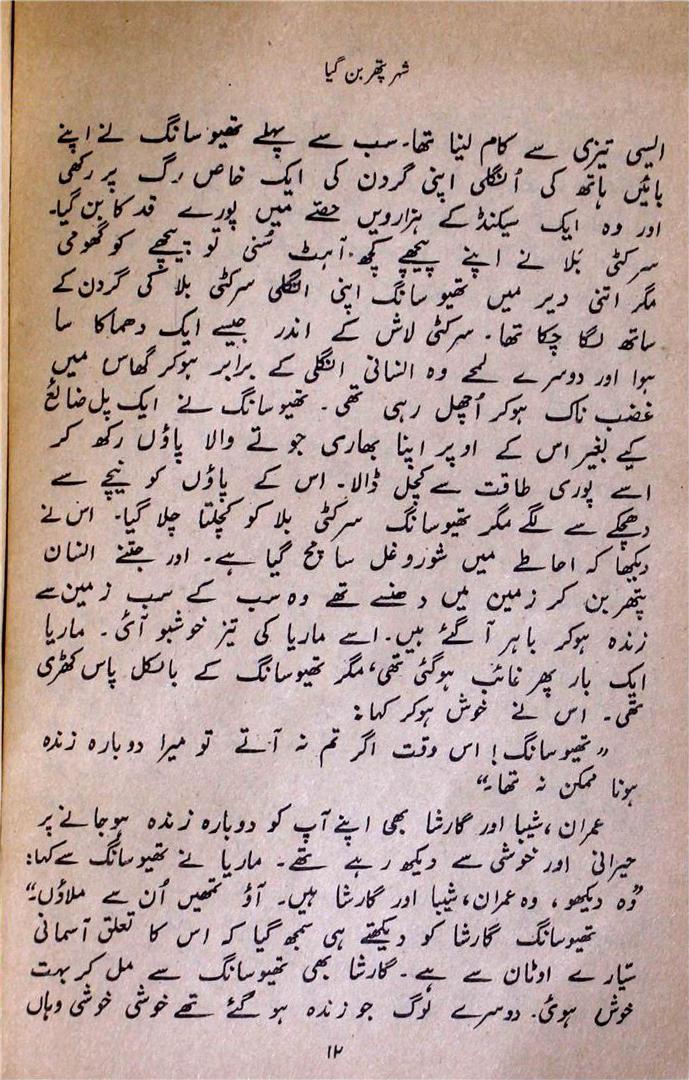 شہر پتھر بن گیا
ایسی تیزی سے کام لینا تھا۔ سب سے پہلے تھیوسانگ نے اپنے
بائیں ہاتھ کی اُنگلی اپنی گردن کی ایک خاص رگ پر رکھی
اور وہ ایک سیکنڈ کے ہزارویں حصّے میں پورے قد کا بن گیا۔
سرکٹی بلا نے اپنے پیچھے کچھ آہٹ سُنی تو پیچھے کو گھومی
مگر اتنی دیر میں تھیوسانگ اپنی انگلی سرکٹی بلا کی گردن کے
ساتھ لگا چکا تھا۔ سرکٹی لاش کے اندر جیسے ایک دھماکا سا
ہوا اور دوسرے لمحے وہ انسانی انگلی کے برابر ہوکر گھاس میں
غضب ناک ہوکر اُچھل رہی تھی۔ تھیوسانگ نے ایک پل ضائع
کیے بغیر اس کے اوپر اپنا بھاری جوتے والا پاؤں رکھ کر
اسے پوری طاقت سے کچل ڈالا۔ اس کے پاؤں کو نیچے سے
دھچکے سے لگے مگر تھیوسانگ سرکٹی بلا کو کچلتا چلا گیا۔ اس نے
دیکھا کہ احاطے میں شوروغل سا مچ گیا ہے۔ اور جتنے انسان
پتھر بن کر زمین میں دھنسے تھے وہ سب کے سب زمین سے
زندہ ہوکر باہر آگئے ہیں۔ اسے ماریا کی تیز خوشبو آئی۔ ماریا
ایک بار پھر غائب ہوگئی تھی، مگر تھیوسانگ کے بالکل پاس کھڑی
تھی۔ اس نے خوش ہوکر کہا:
”تھیوسانگ! اس وقت اگر تم نہ آتے تو میرا دوبارہ زندہ
ہونا ممکن نہ تھا۔“
عمران، شیبا اور گارشا بھی اپنے آپ کو دوبارہ زندہ ہوجانے پر
حیرانی اور خوشی سے دیکھ رہے تھے۔ ماریا نے تھیوسانگ سے کہا:
”وہ دیکھو، وہ عمران، شیبا اور گارشا ہیں۔ آؤ تمھیں اُن سے ملاؤں۔“
تھیوسانگ گارشا کو دیکھتے ہی سمجھ گیا کہ اس کا تعلق آسمانی
سیّارے اوٹان سے ہے۔ گارشا بھی تھیوسانگ سے مل کر بہت
خوش ہوئی۔ دوسرے لوگ جو زندہ ہو گئے تھے خوشی خوشی وہاں
۱۲